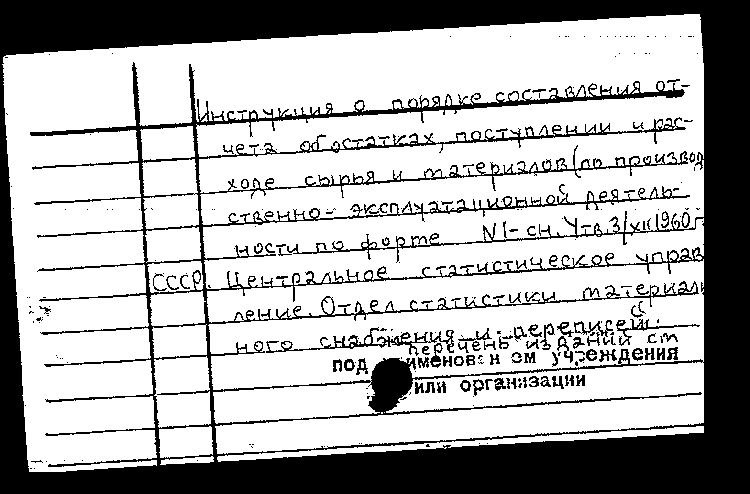 Инструкция о порядке составления от-
чета об остатках, поступлении и рас-
ходе сырья и материалов (по производ
ственно-эксплуатационной деятель-
ности по форме N 1-сн. Утв. 3/XII 1960 г.
СССР. Центральное статистическое управ
ление. Отдел статистики материаль
ного снабжения и переписей.
перечень изданий см
под наименованием учреждения
или организации